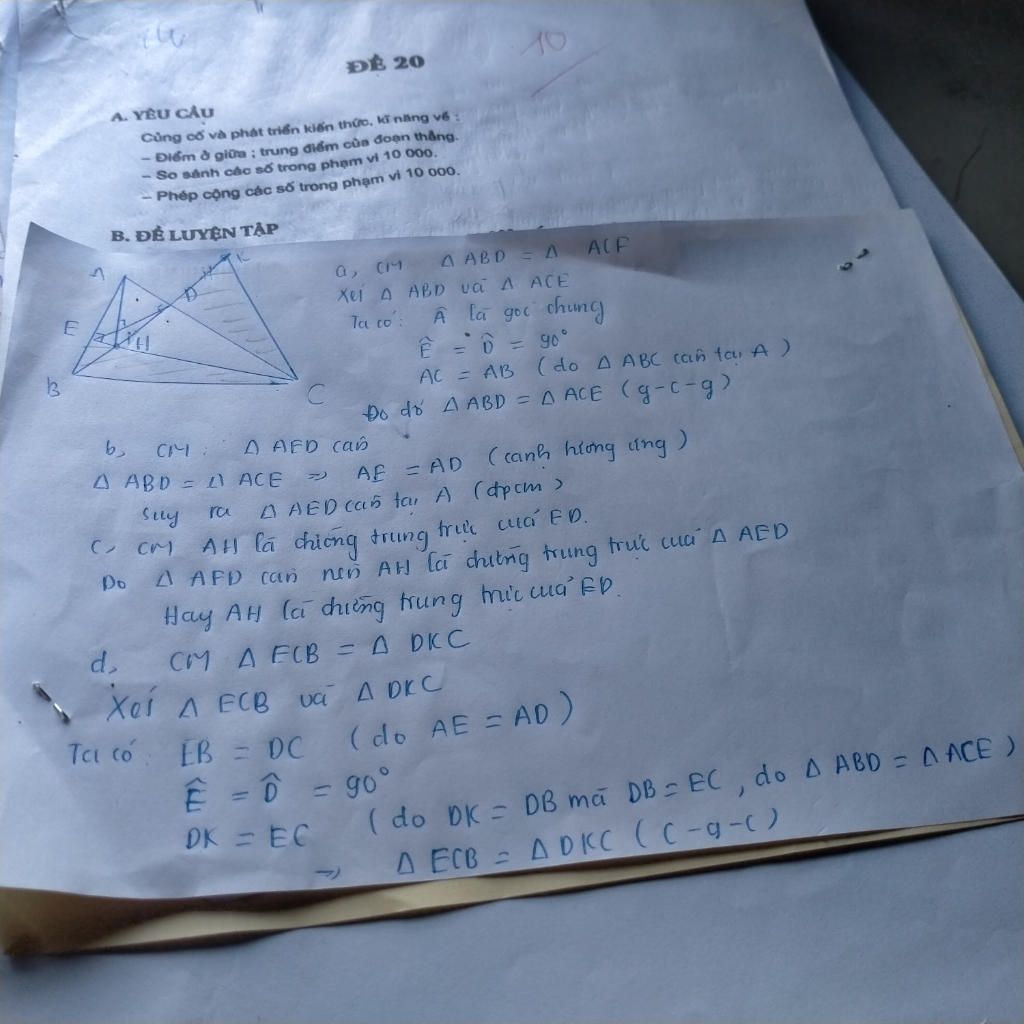 10
ĐỀ 20
A. YÊU CẦU
Củng cố và phát triển kiến thức, kĩ năng về :
– Điểm ở giữa ; trung điểm của đoạn thẳng.
– So sánh các số trong phạm vi 10 000.
– Phép cộng các số trong phạm vi 10 000.
B. ĐỀ LUYỆN TẬP
A
K
D
E
H
B
C
a, CM Δ ABD = Δ ACE
Xét Δ ABD và Δ ACE
Ta có: Â là góc chung
Ê = D̂ = 90°
AC = AB (do Δ ABC cân tại A)
Do đó Δ ABD = Δ ACE (g-c-g)
b, CM : Δ AED cân
Δ ABD = Δ ACE => AE = AD (cạnh tương ứng)
Suy ra Δ AED cân tại A (đpcm)
c, CM AH là đường trung trực của ED.
Do Δ AED cân nên AH là đường trung trực của Δ AED
Hay AH là đường trung trực của ED.
d, CM Δ ECB = Δ DKC
Xét Δ ECB và Δ DKC
Ta có: EB = DC (do AE = AD)
Ê = D̂ = 90°
DK = EC (do DK = DB mà DB = EC, do Δ ABD = Δ ACE)
=> Δ ECB = Δ DKC (c-g-c)